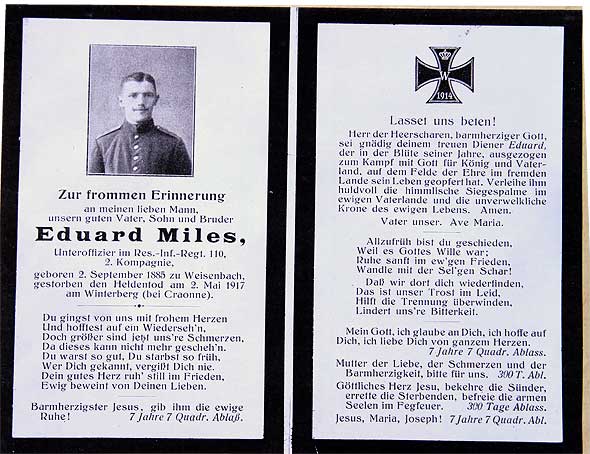 Zur frommen Erinnerung
an meinen lieben Mann,
unsern guten Vater, Sohn und Bruder
Eduard Miles,
Unteroffizier im Res.-Inf.-Regt. 110,
2. Kompagnie,
geboren 2. September 1885 zu Weisenbach,
gestorben den Heldentod am 2. Mai 1917
am Winterberg (bei Craonne).
Du gingst von uns mit frohem Herzen
Und hofftest auf ein Wiederseh'n,
Doch größer sind jetzt uns're Schmerzen,
Da dieses kann nicht mehr gescheh'n.
Du warst so gut, Du starbst so früh,
Wer Dich gekannt, vergißt Dich nie.
Dein gutes Herz ruh' still im Frieden,
Ewig beweint von Deinen Lieben.
Barmherzigster Jesus, gib ihm die ewige
Ruhe! 7 Jahre 7 Quadr. Ablaß.
W
1914
Lasset uns beten!
Herr der Heerscharen, barmherziger Gott,
sei gnädig deinem treuen Diener Eduard,
der in der Blüte seiner Jahre, ausgezogen
zum Kampf mit Gott für König und Vater-
land, auf dem Felde der Ehre im fremden
Lande sein Leben geopfert hat. Verleihe ihm
huldvoll die himmlische Siegespalme im
ewigen Vaterlande und die unverwelkliche
Krone des ewigen Lebens. Amen.
Vater unser. Ave Maria.
Allzufrüh bist du geschieden,
Weil es Gottes Wille war;
Ruhe sanft im ew'gen Frieden,
Wandle mit der Sel'gen Schar!
Daß wir dort dich wiederfinden,
Das ist unser Trost im Leid,
Hilft die Trennung überwinden,
Lindert uns're Bitterkeit.
Mein Gott, ich glaube an Dich, ich hoffe auf
Dich, ich liebe Dich von ganzem Herzen.
7 Jahre 7 Quadr. Ablass.
Mutter der Liebe, der Schmerzen und der
Barmherzigkeit, bitte für uns. 300 T. Abl.
Göttliches Herz Jesu, bekehre die Sünder,
errette die Sterbenden, befreie die armen
Seelen im Fegfeuer. 300 Tage Ablass.
Jesus, Maria, Joseph! 7 Jahre 7 Quadr. Abl.